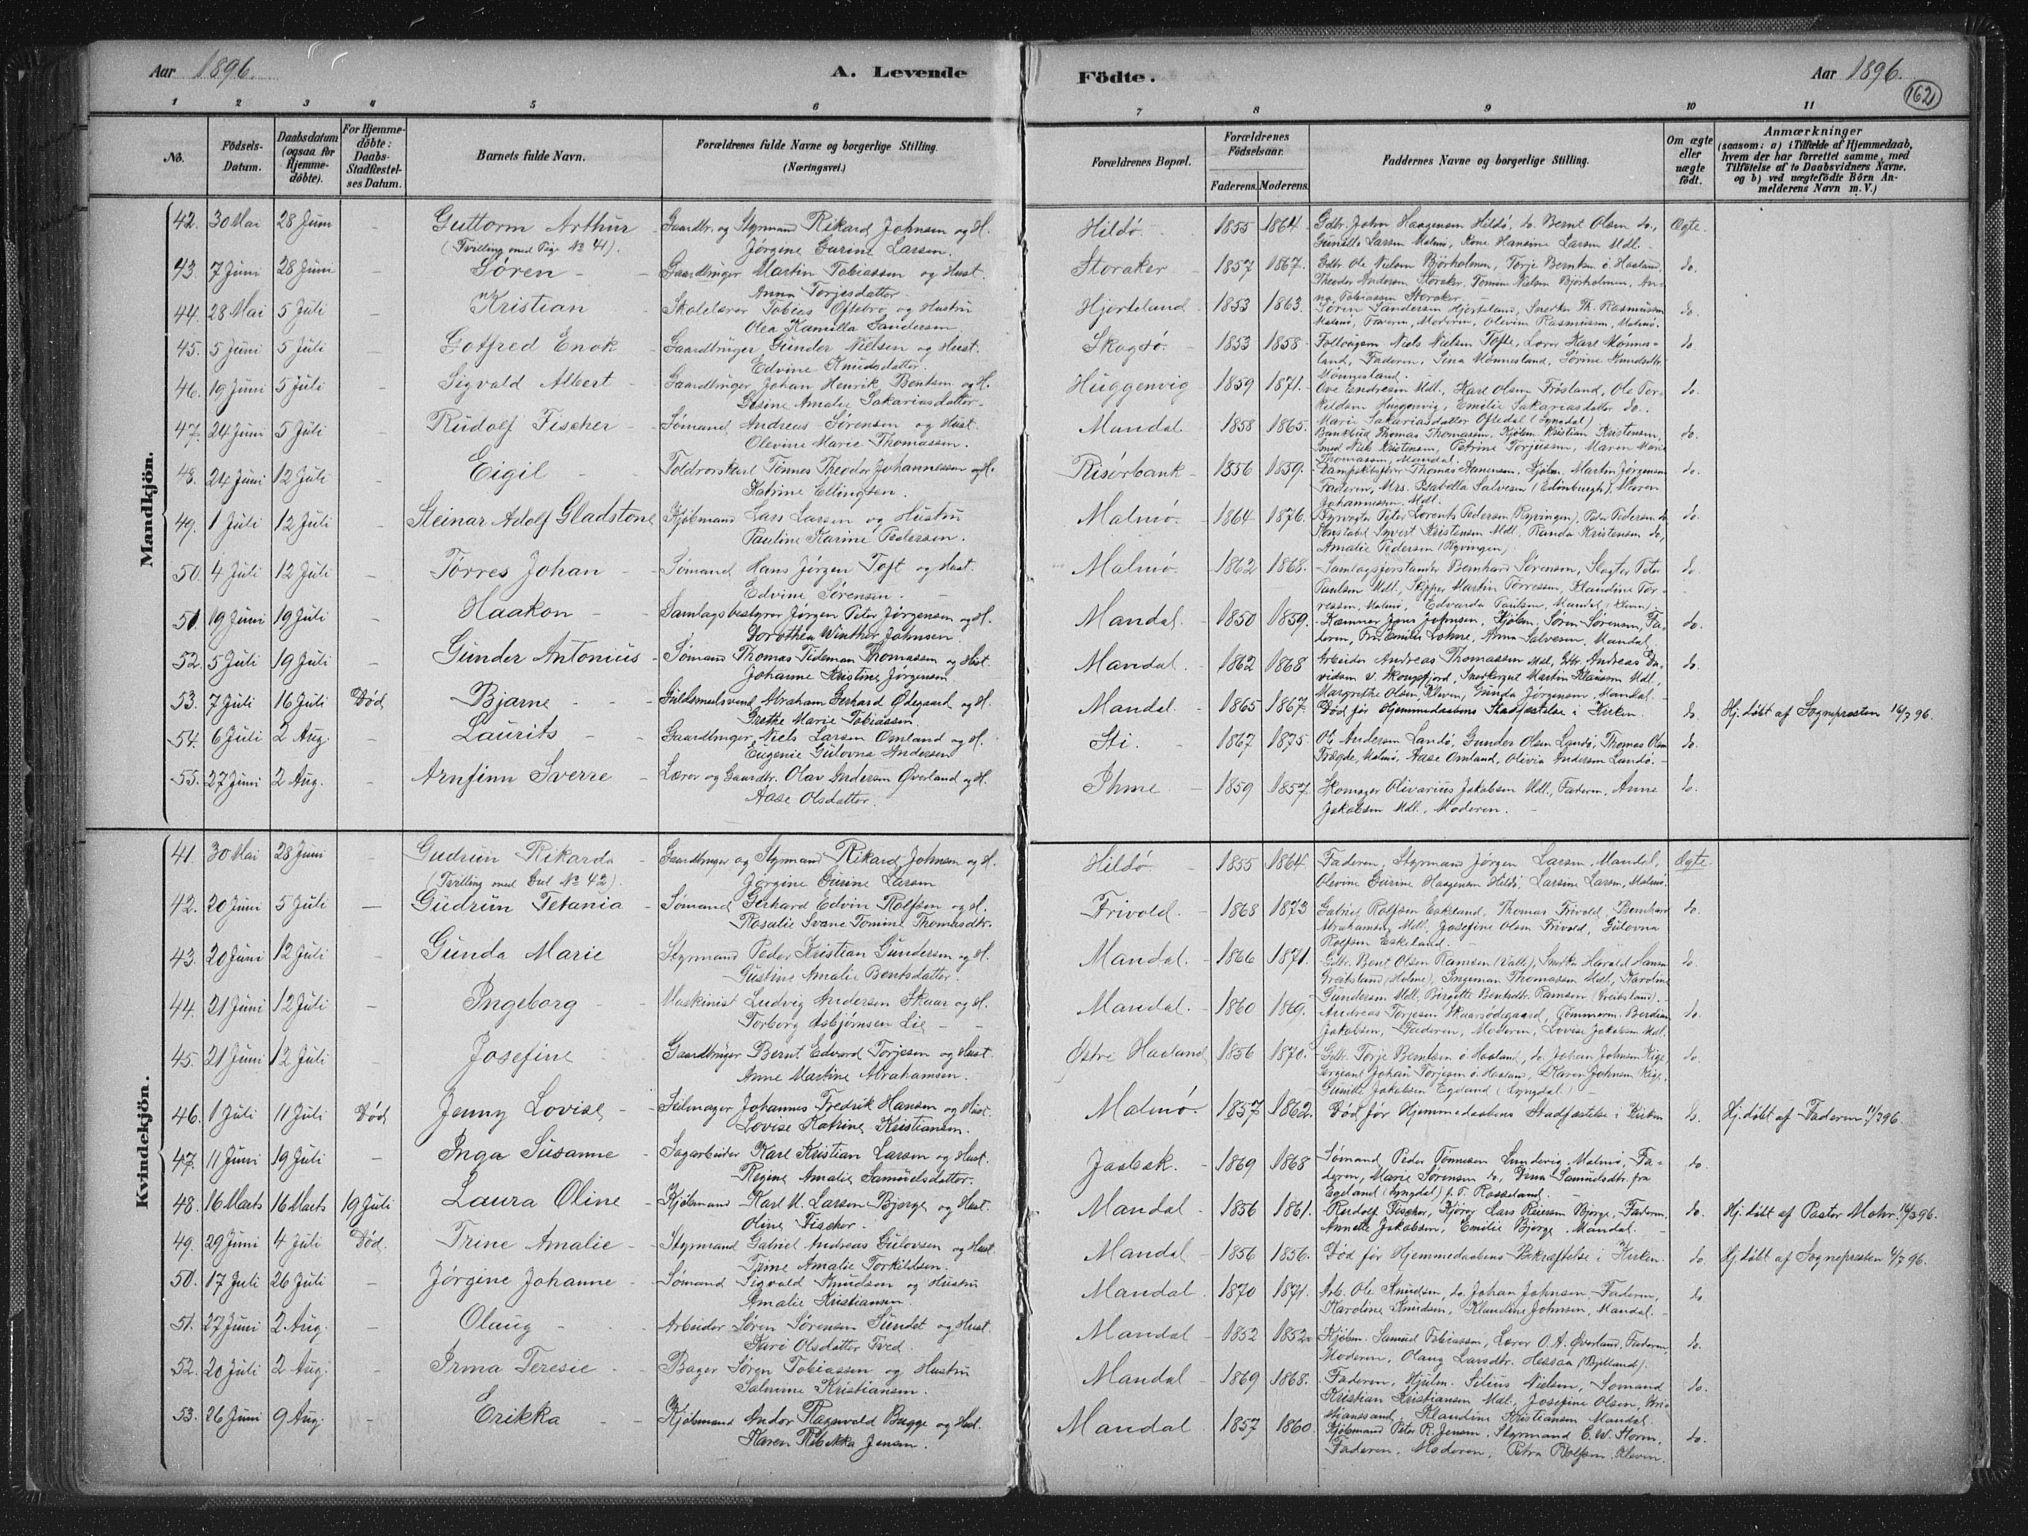 Aar 1896.
A. Levende
1 2 3 4 5 6
No.
Fødsels-Datum.
Daabsdatum (ogsaa for Hjemme-døbte).
For Hjemme-døbte: Daabs-Stadfæstel-ses Datum.
Barnets fulde Navn.
Forældrenes fulde Navne og borgerlige Stilling. (Næringsvei.)
Mandkjön.
42. 30 Mai 28 Juni - Guttorm Arthur - Gaardbr. og Styrmand Rikard Johnsen og H.
(Tvilling med Pige No 41). Jörgine Gurine Larsen.
43. 7 Juni 28 Juni - Søren - Gaardbruger Martin Tobiassen og Hust.
Anna Torjesdatter.
44. 28 Mai 5 Juli - Kristian - Skolelærer Tobias Oftebro og Hustru
Olea Kamilla Sandersen.
45. 5 Juni 5 Juli - Gotfred Enok - Gaardbruger Gunder Nielsen og Hust.
Edvine Knudsdatter.
46. 19 Juni 5 Juli - Sigvald Albert - Gaardbruger Johan Henrik Bentsen og H.
Gesine Amalie Sakariasdatter.
47. 24 Juni 5 Juli - Rudolf Fischer - Sømand Andreas Sørensen og Hust.
Olevine Marie Thomassen.
48. 24 Juni 12 Juli - Eigil - Toldrorskarl Tønnes Theodor Johannessen og H.
Katrine Ellingsen.
49. 1 Juli 12 Juli - Steinar Adolf Gladstone Kjøbmand Lars Larsen og Hustru
Pauline Karine Pedersen.
50. 4 Juli 12 Juli - Tørres Johan - Sømand Hans Jørgen Toft og Hust.
Edvine Sørensen
51. 19 Juni 19 Juli - Haakon - Samlagsbestyrer Jørgen Peter Jørgensen og H.
Dorothea Winther Johnsen.
52. 5 Juli 19 Juli - Gunder Antonius - Sømand Thomas Tideman Thomassen og Hust.
Johanne Kristine Jørgensen.
53. 7 Juli 16 Juli Død Bjarne - Guldsmedsvend Abraham Gerhard Ødegaard og H.
Grethe Marie Tobiassen.
54. 6 Juli 2 Aug. - Laurits - Gaardbruger Niels Larsen Omland og H.
Eugenie Gulovna Andersen
55. 27 Juni 2 Aug. - Arnfinn Sverre - Lærer og Gaardbr. Olav Andersen Øverland og H.
Aase Olsdatter.
Kvindekjön.
41. 30 Mai 28 Juni - Gudrun Rikarda - Gaardbruger og Styrmand Rikard Johnsen og H.
(Tvilling med Gut No 42). Jørgine Gurine Larsen
42. 20 Juni 5 Juli - Gudrun Tetania - Sømand Gerhard Edvin Rolfsen og H.
Rosalie Svane Tomine Thomasdtr.
43. 20 Juni 12 Juli - Gunda Marie Styrmand Peder Kristian Gundersen og H.
Gustine Amalie Bentsdatter.
44. 21 Juni 12 Juli - Ingeborg - Maskinist Ludvig Andersen Skaar og H.
Torborg Asbjørnsen Lie
45. 21 Juni 12 Juli - Josefine Gaardbruger Bernt Edvard Torjesen og Hust.
Anne Martine Abrahamsen.
46. 1 Juli 11 Juli Død Jenny Lovise - Seilmager Johannes Fredrik Hansen og Hust.
Lovise Katrine Kristiansen.
47. 11 Juni 19 Juli - Inga Susanne - Sagarbeider Karl Kristian Larsen og Hust.
Regine Amalie Samuelsdatter.
48. 16 Marts 16 Marts 19 Juli Laura Oline - Kjøbmand Karl M. Larsen Bjorge og Hust.
Oline Fischer.
49. 29 Juni 4 Juli Død. Trine Amalie - Styrmand Gabriel Andreas Gulovsen og Hust
Trine Amalie Torkildsen.
50. 17 Juli 26 Juli - Jørgine Johanne - Sømand Sigvald Knudsen og Hustru
Amalie Kristiansen.
51. 27 Juni 2 Aug. - Olaug - Arbeider Søren Sørensen Sundet og Hust.
Kari Olsdatter Tved.
52. 20 Juli 2 Aug. - Irma Teresie - Bager Søren Tobiassen og Hustru
Salmine Kristiansen.
53. 26 Juni 9 Aug. - Erikka - Kjøbmand Andor Ragnvald Bugge og Hust.
Karen Rebekka Jensen.
Födte.
Aar 1896.
162
7 8 9 10 11
Forældrenes Bopæl.
Forældrenes Fødselsaar.
Faderens. Moderens.
Faddernes Navne og borgerlige Stilling.
Om ægte eller uægte født.
Anmærkninger
(saasom: a) i Tilfælde af Hjemmedaab,
hvem der har forrettet samme, med
Tilføielse af to Daabsvidners Navne,
og b) ved uægtefødte Børn An-
melderens Navn m. V.)
Hildö. 1855 1864 Gdbr. John Haagensen Hildö, do. Bernt Olsen do., Ægte.
Gunvald Larsen Malmö, Kone Hansine Larsen Mdl.
Storaker 1857 1867. Gdbr. Ole Nielsen Bjørholmen, Torje Berntsen ö. Haaland, do.
Theodor Andersen Storaker, Tomine Nielsen Bjørholmen, An-
na Tobiassen Storaker.
Hjorteland 1853 1863. Søren Sandersen Hjorteland, Snedker Th. Rasmussen do.
Malmö, Faderen, Moderen, Olevine Rasmussen, Malmö.
Skogsö. 1853 1858. Folkvigsen Niels Nielsen Tofte, Lærer Karl Mønnes- do.
land, Faderen, Sina Mønnesland, Sørine Knudsdatter
Mønnesland.
Huggenvig 1859 1871. Ove Endresen Mdl., Karl Olsen Frösland, Ole Tor- do
kildsen Huggenvig, Emilie Sakariasdatter do.
Marie Sakariasdatter Oftedal (Lyngdal)
Mandal 1858 1865. Bankbud Thomas Thomassen, Kjøbm. Kristian Kristensen, do.
Smed Nils Kristensen, Petrine Torjussen, Maren Marie
Thomassen, Mandal.
Risörbank 1856 1859. Dampskibsfører Thomas Aanensen, Kjøbm. Martin Jørgensen do.
Faderen, Mrs. Isabella Salvesen (Edinburgh), Maren
Johannesen Mdl.
Malmö. 1864 1876. Fyrvogter Peter Lorents Pedersen (Ryvingen), Peter Pedersen do. do.
Konstabel Syvert Kristensen Mdl. Randa Kristensen do,
Amalie Pedersen (Ryvingen)
Malmö. 1862 1868. Samlagsforstander Bernhard Sørensen, Slagter Peter do.
Paulsen Mdl., Skipper Martin Tørressen, Klandine Tør-
ressen, Malmö, Edvarda Paulsen, Mandal (Kleven).
Mandal. 1850 1859. Kæmner Jens Johnsen, Kjøbm. Søren Sørensen, Fa- do.
deren, Fru Emilie Lohne, Anna Salvesen, Mandal.
Mandal. 1862 1868 Arbeider Andreas Thomassen Mdl, Gdbr. Andreas Da- do.
vidsen v. Skougsfjord, Snedkersvd. Martin Klausen Mdl,
Margrethe Olsen Kleven, Gunda Jørgensen, Mandal.
Mandal. 1865 1867. Død før Hjemmedaabens Stadfæstelse i Kirken. do. Hj. døbt af Sognepresten 16/7 96.
Sti. 1867 1875 Ol. Andersen Landö, Gunder Olsen Landö, Thomas Olsen do.
Frægde, Malmö, Aase Omland, Olivia Andersen Landö.
Ihme. 1859 1857. Skomager Olivarius Jakobsen Mdl., Faderen, Anne do.
Jakobsen Mdl., Moderen.
Hildö 1855 1864. Faderen, Styrmand Jørgen Larsen, Mandal, Ægte.
Olevine Gurine Haagensen Hildö, Larsine Larsen, Malmö.
Frivold. 1868 1873 Gabriel Rolfsen Eskeland, Thomas Frivold, Bernhard do.
Abrahamsen Mdl, Josefine Olsen Frivold, Gulovna
Rolfsen Eskeland.
Mandal 1866 1871. Gdbr. Bent Olsen Ramsen (Valle), Snedker Harald Hansen do.
Greibsland (Holme), Ingeman Thomassen Mdl, Karoline
Gundersen Mdl, Birgitte Bentsdtr. Ramsen (Greibsland).
Mandal. 1860 1869. Andreas Torjesen Skaarsødegaard, Tømmerm. Berdien do.
Jakobsen, Faderen, Moderen, Lovise Jakobsen Mdl.
Østre Haaland 1856 1870. Gdb. Torje Berntsen ö. Haaland, do. Johan Johnsen Rige, do.
Sergeant Johan Torjesen ö. Haaland, Karen Johnsen Rige,
Gunild Jakobsen Egeland (Lyngdal)
Malmö. 1857 1862. Død før Hjemmedaabens Stadfæstelse i Kirken do. Hj. døbt af Faderen 11/7 96.
Jaabæk. 1869 1868 Sømand Peder Tønnesen Lundevig, Malmö, Fa- do.
deren, Marie Sørensen do, Dina Samuelsdtr. fra
Egeland (Lyngdal) p. T. Rosseland.
Mandal 1856 1861. Rudolf Fischer, Kjørev. Lars Reiersen Bjorge, Faderen, do. Hj. døbt af Pastor Mohr. 16/3 96.
Annette Jakobsen, Emilie Bjorge, Mandal.
Mandal. 1856 1856. Død før Hjemmedaabens Bekræftelse i Kirken. do. Hj. døbt af Sognepresten 4/7 96.
Mandal 1870 1871. Arb. Ole Knudsen, do. Johan Johnsen, Faderen, do.
Karoline Knudsen, Klandine Johnsen, Mandal.
Mandal 1852 1852 Kjøbm. Samuel Tobiassen, Lærer O. A. Øverland, Faderen, do.
Moderen, Olaug Larsdtr. Hessaa (Bjelland).
Mandal 1869 1868. Faderen, Hjulm. Silius Nielsen, Sømand do.
Kristian Kristiansen Mdl, Josefine Olsen, Kri-
stianssand, Klandine Kristiansen Mandal
Mandal 1857 1860. Kjøbmand Peter R. Jensen, Styrmand C. W. Storm, do.
Faderen, Moderen, Petra Rolfsen, Kleven.